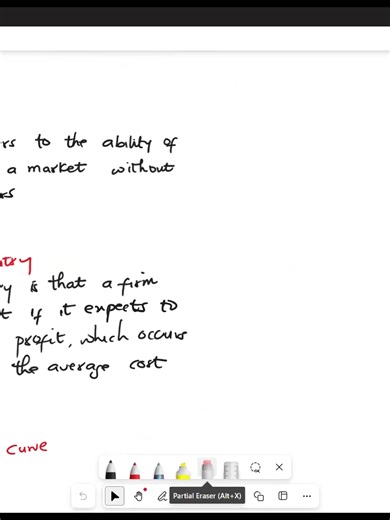 rs to the ability of
a market without
rs
try
y is that a firm
t if it expects to
profit, which occurs
the average cost
curve
Partial Eraser (Alt+X)